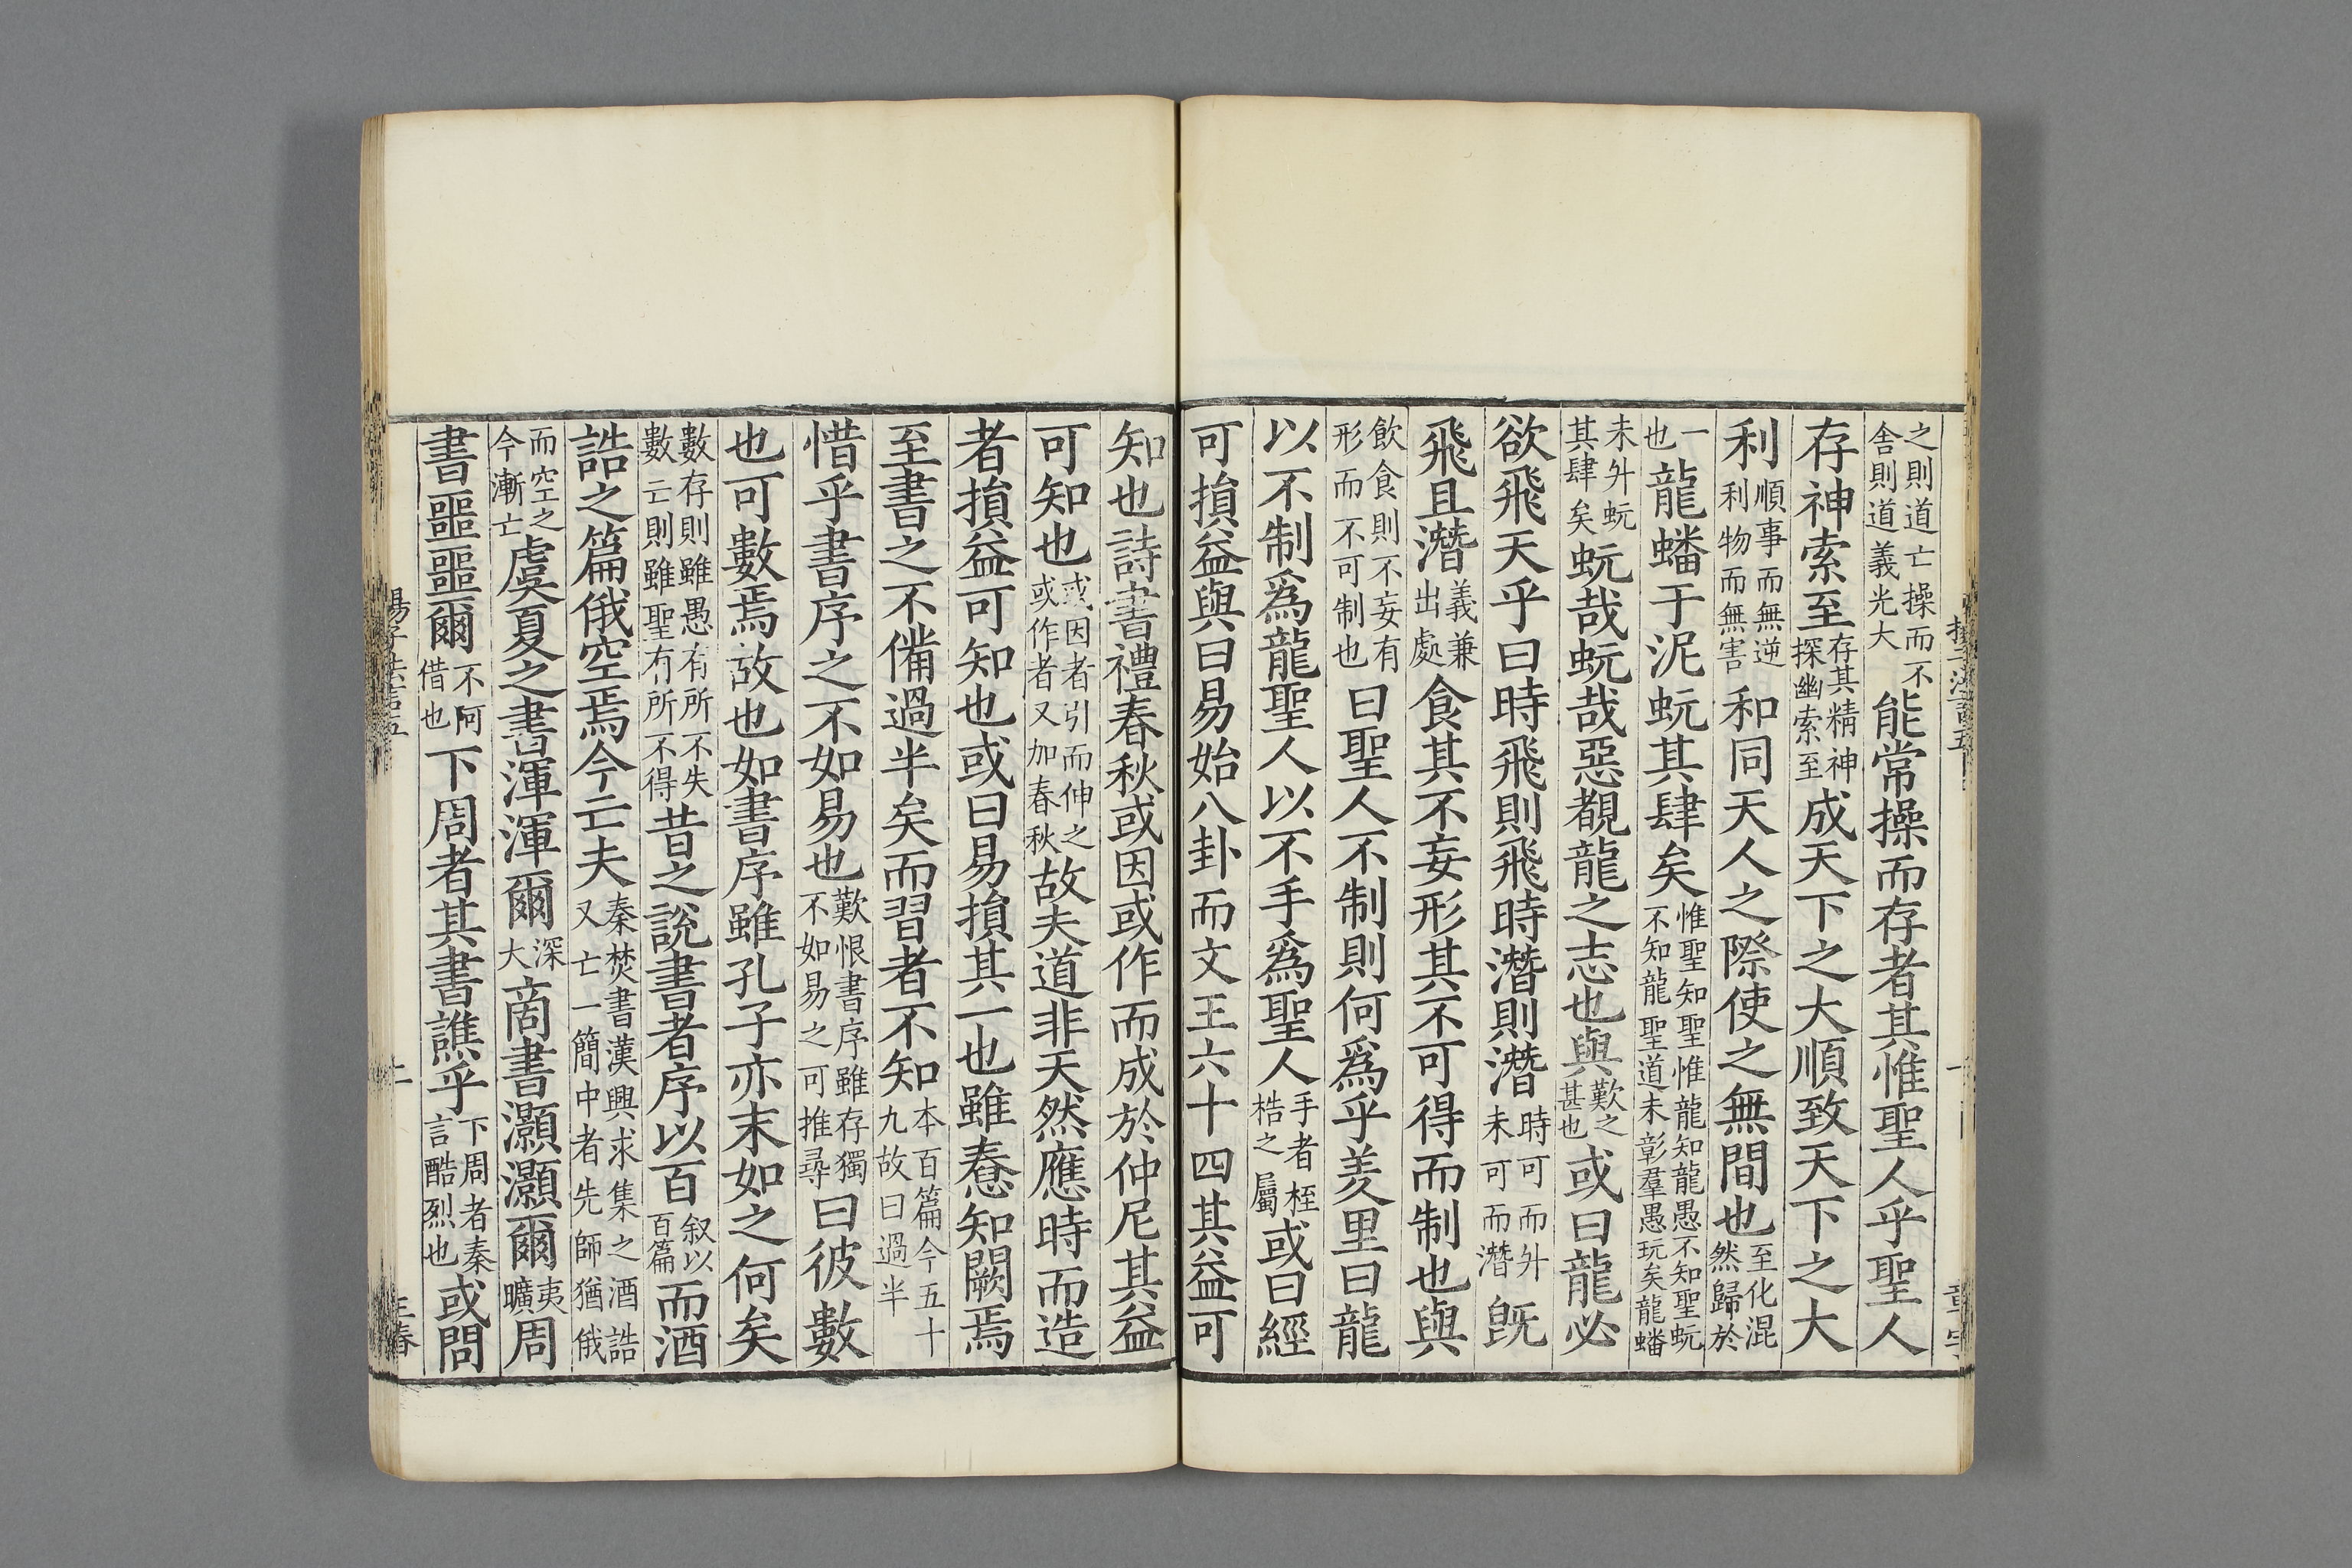 之則道亡操而不舍則道義光大能常操而存者其惟聖人乎聖人
存神索至存其精神探幽索至成天下之大順致天下之大
利順事而無逆利物而無害和同天人之際使之無間也至化混然歸於
一也龍蟠于泥蚖其肆矣惟聖知聖惟龍知龍愚不知聖蚖不知龍聖道未彰羣愚玩矣龍蟠
未升蚖其肆矣蚖哉蚖哉惡覩龍之志也與歎之甚也或曰龍必
欲飛天乎曰時飛則飛時潛則潛時可而升未可而潛旣
飛且潛義兼出處食其不妄形其不可得而制也與
飲食則不妄有形而不可制也曰聖人不制則何爲乎羑里曰龍
以不制爲龍聖人以不手爲聖人手者桎梏之屬或曰經
可損益與曰易始八卦而文王六十四其益可
知也詩書禮春秋或因或作而成於仲尼其益
可知也或因者引而伸之或作者又加春秋故夫道非天然應時而造
者損益可知也或曰易損其一也雖惷知闕焉
至書之不備過半矣而習者不知本百篇今五十九故曰過半
惜乎書序之不如易也歎恨書序雖存獨不如易之可推尋曰彼數
也可數焉故也如書序雖孔子亦末如之何矣
數存則雖愚有所不失數亡則雖聖有所不得昔之說書者序以百叙以百篇而酒
誥之篇俄空焉今亡夫秦焚書漢興求集之酒誥又亡一簡中者先師猶俄
而空之今漸亡虞夏之書渾渾爾深大商書灝灝爾夷曠周
書噩噩爾不阿借也下周者其書譙乎下周者秦言酷烈也或問